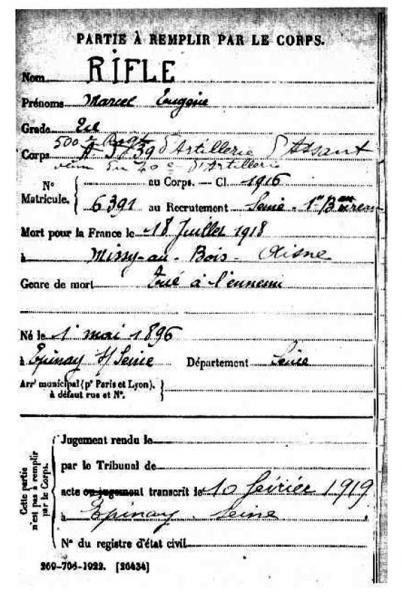 PARTIE À REMPLIR PAR LE CORPS.
Nom RIFLE
Prénoms Marcel Eugène
Grade 2e
500e Regt d'Artillerie d'Assaut
Corps
venu du 40e d'Artillerie
N° Matricule. { au Corps. — Cl. 1916
6391 au Recrutement Seine - 1er Bau
Mort pour la France le 18 Juillet 1918
à Missy-au-Bois - Aisne
Genre de mort Tué à l'ennemi
Né le 1 mai 1896
à Epinay S/ Seine Département Seine
Arrt municipal (pr Paris et Lyon), à défaut rue et N°. }
Cette partie n'est pas à remplir par le Corps. {
Jugement rendu le
par le Tribunal de
acte ou jugement transcrit le 10 février 1919
à Epinay Seine
N° du registre d'état civil
269-708-1922. [26434]